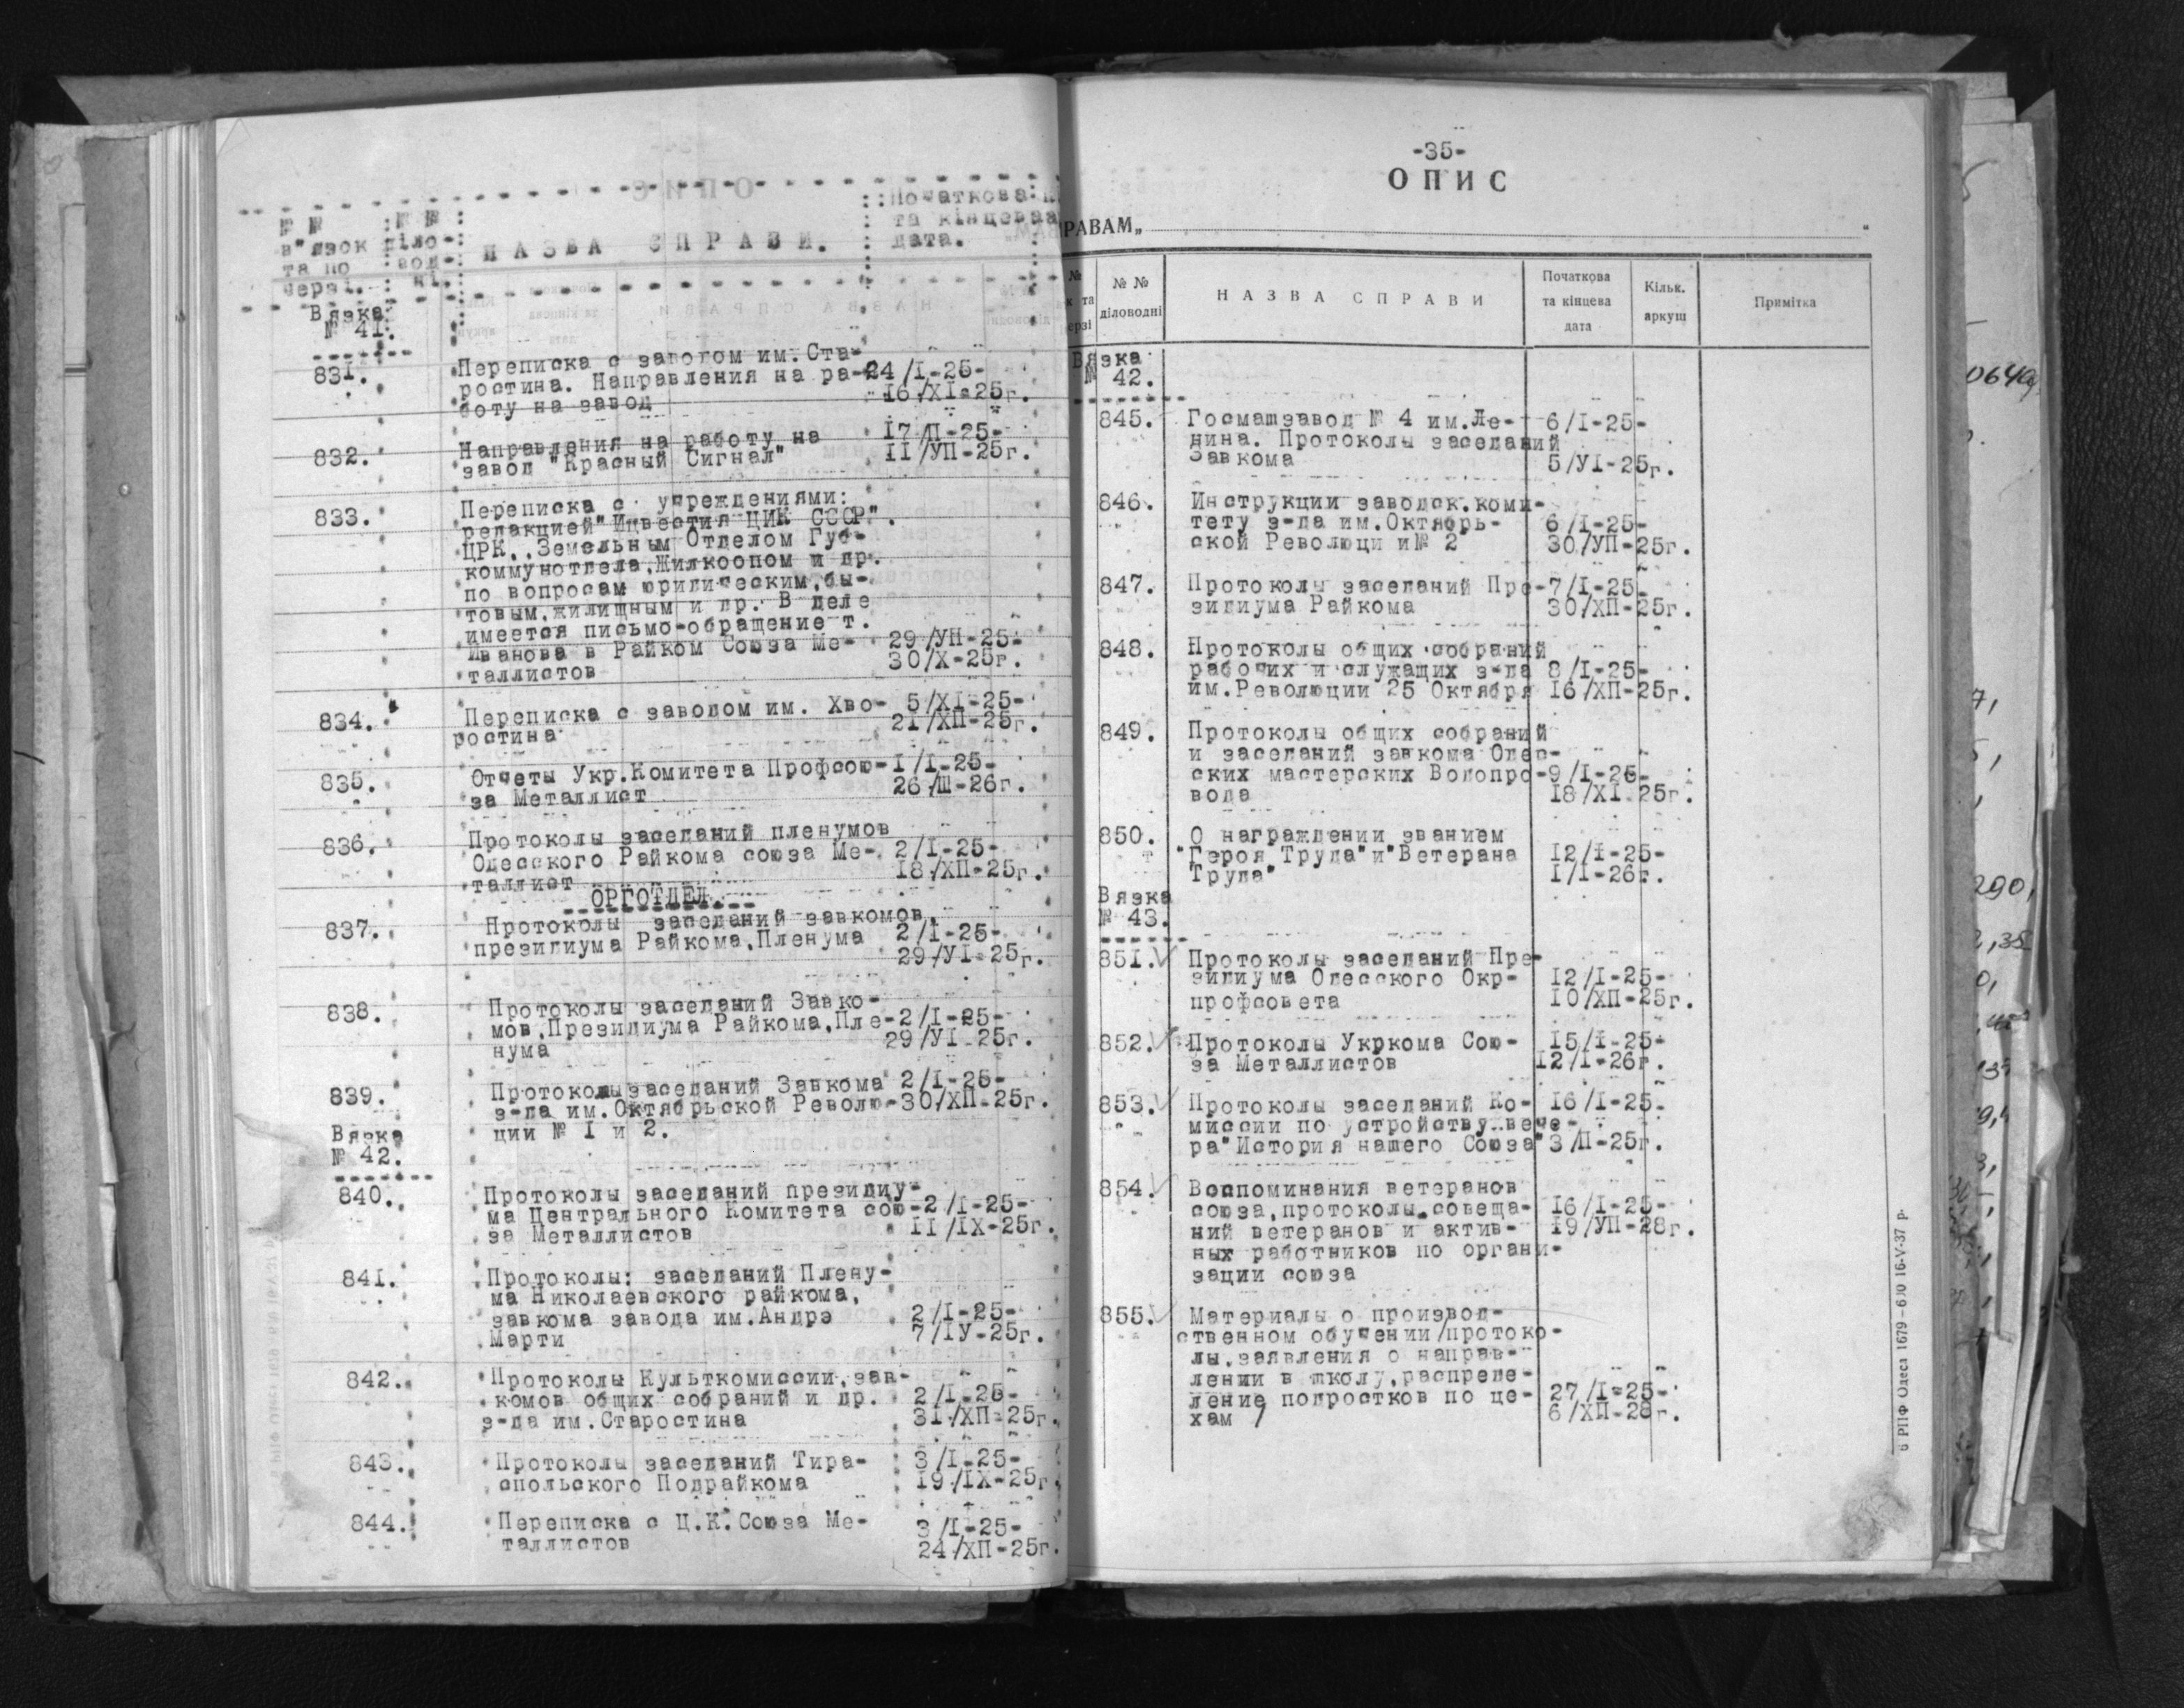 № № в"язок та по черзі.
№ № діловодні.
НАЗВА СПРАВИ.
Початкова та кінцева дата.
Вязка
№ 41.
831. Переписка с заводом им. Ста-
ростина. Направления на ра- 24/I-25-
боту на завод 16/XI-25г.
832. Направления на работу на 17/П-25-
завод "Красный Сигнал" II/УП-25г.
833. Переписка с учреждениями:
редакцией "Известия ЦИК СССР".
ЦРК., Земельным Отделом Губ-
коммунотдела, Жилкоопом и др.
по вопросам юридическим, бы-
товым, жилищным и др. В деле
имеется письмо-обращение т.
Иванова в Райком Союза Ме- 29/УП-25-
таллистов 30/X-25г.
834. Переписка с заводом им. Хво- 5/XI-25-
ростина 21/ХП-25г.
835. Отчеты Укр.Комитета Профсою- I/I-25-
за Металлист 26/Ш-26г.
836. Протоколы заседаний пленумов
Одесского Райкома союза Ме- 2/I-25-
таллист 18/ХП-25г.
ОРГОТДЕЛ.
837. Протоколы заседаний завкомов,
президиума Райкома, Пленума 2/I-25-
29/УI-25г.
838. Протоколы заседаний Завко-
мов, Президиума Райкома, Пле- 2/I-25-
нума 29/УI-25г.
839. Протоколы заседаний Завкома 2/I-25-
з-да им.Октябрьской Револю- 30/ХП-25г.
ции № I и 2.
Вязка
№ 42.
840. Протоколы заседаний президиу-
ма Центрального Комитета сою- 2/I-25-
за Металлистов II/IX-25г.
841. Протоколы: заседаний Плену-
ма Николаевского райкома,
завкома завода им.Андрэ 2/I-25-
Марти 7/IУ-25г.
842. Протоколы Культкомиссии, зав-
комов общих собраний и др. 2/I-25-
з-да им.Старостина 31/ХП-25г.
843. Протоколы заседаний Тира- 3/I-25-
спольского Подрайкома 19/IX-25г.
844. Переписка с Ц.К. Союза Ме- 3/I-25-
таллистов 24/ХП-25г.
-35-
ОПИС
РАВАМ„ “
№
к та
ерзі
№ №
діловодні
НАЗВА СПРАВИ
Початкова
та кінцева
дата
Кільк.
аркуш
Примітка
Вязка
№ 42.
845. Госмашзавод № 4 им.Ле- 6/I-25-
нина. Протоколы заседаний
Завкома 5/УI-25г.
846. Инструкции заводск.коми-
тету з-да им.Октябрь- 6/I-25-
ской Революции № 2 30/УП-25г.
847. Протоколы заседаний Пре- 7/I-25-
зидиума Райкома 30/ХП-25г.
848. Протоколы общих собраний
рабочих и служащих з-да 8/I-25-
им.Революции 25 Октября 16/ХП-25г.
849. Протоколы общих собраний
и заседаний завкома Одес-
ских мастерских Водопро- 9/I-25-
вода 18/XI-25г.
850. О награждении званием
"Героя Труда" и "Ветерана 12/I-25-
Труда" I/I-26г.
Вязка
№ 43.
851. Протоколы заседаний Пре-
зидиума Одесского Окр- 12/I-25-
профсовета 10/ХП-25г.
852. Протоколы Укркома Сою- 15/I-25-
за Металлистов 12/I-26г.
853. Протоколы заседаний Ко- 16/I-25-
миссии по устройству вече-
ра "История нашего Союза" 3/П-25г.
854. Воспоминания ветеранов
союза, протоколы совеща- 16/I-25-
ний ветеранов и актив- 19/УП-28г.
ных работников по органи-
зации союза
855. Материалы о производ-
ственном обучении /протоко-
лы, заявления о направ-
лении в школу, распреде-
ление подростков по це- 27/I-25-
хам / 6/ХП-28г.
РПФ Одеса 1679 — 16-V-37 р.
0649
290,